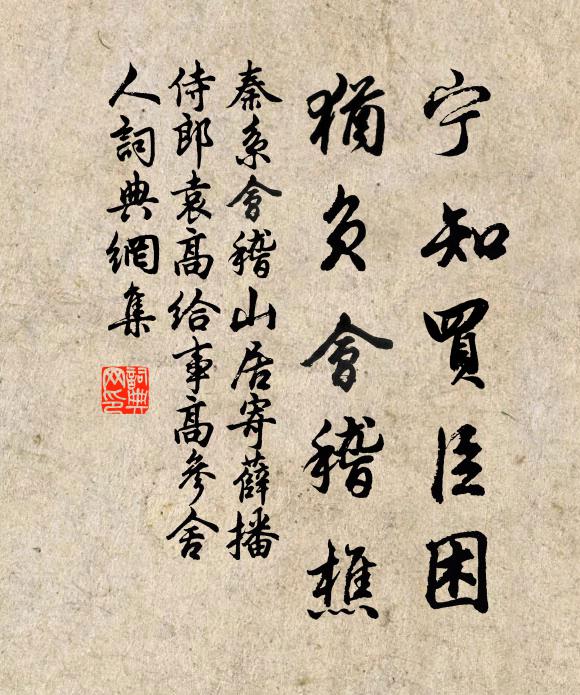 宁知買臣困
猶负會稽樵
秦系會稽山居寄薛播
侍郎袁高給事高參舍
人詞典網集
詞典
网印